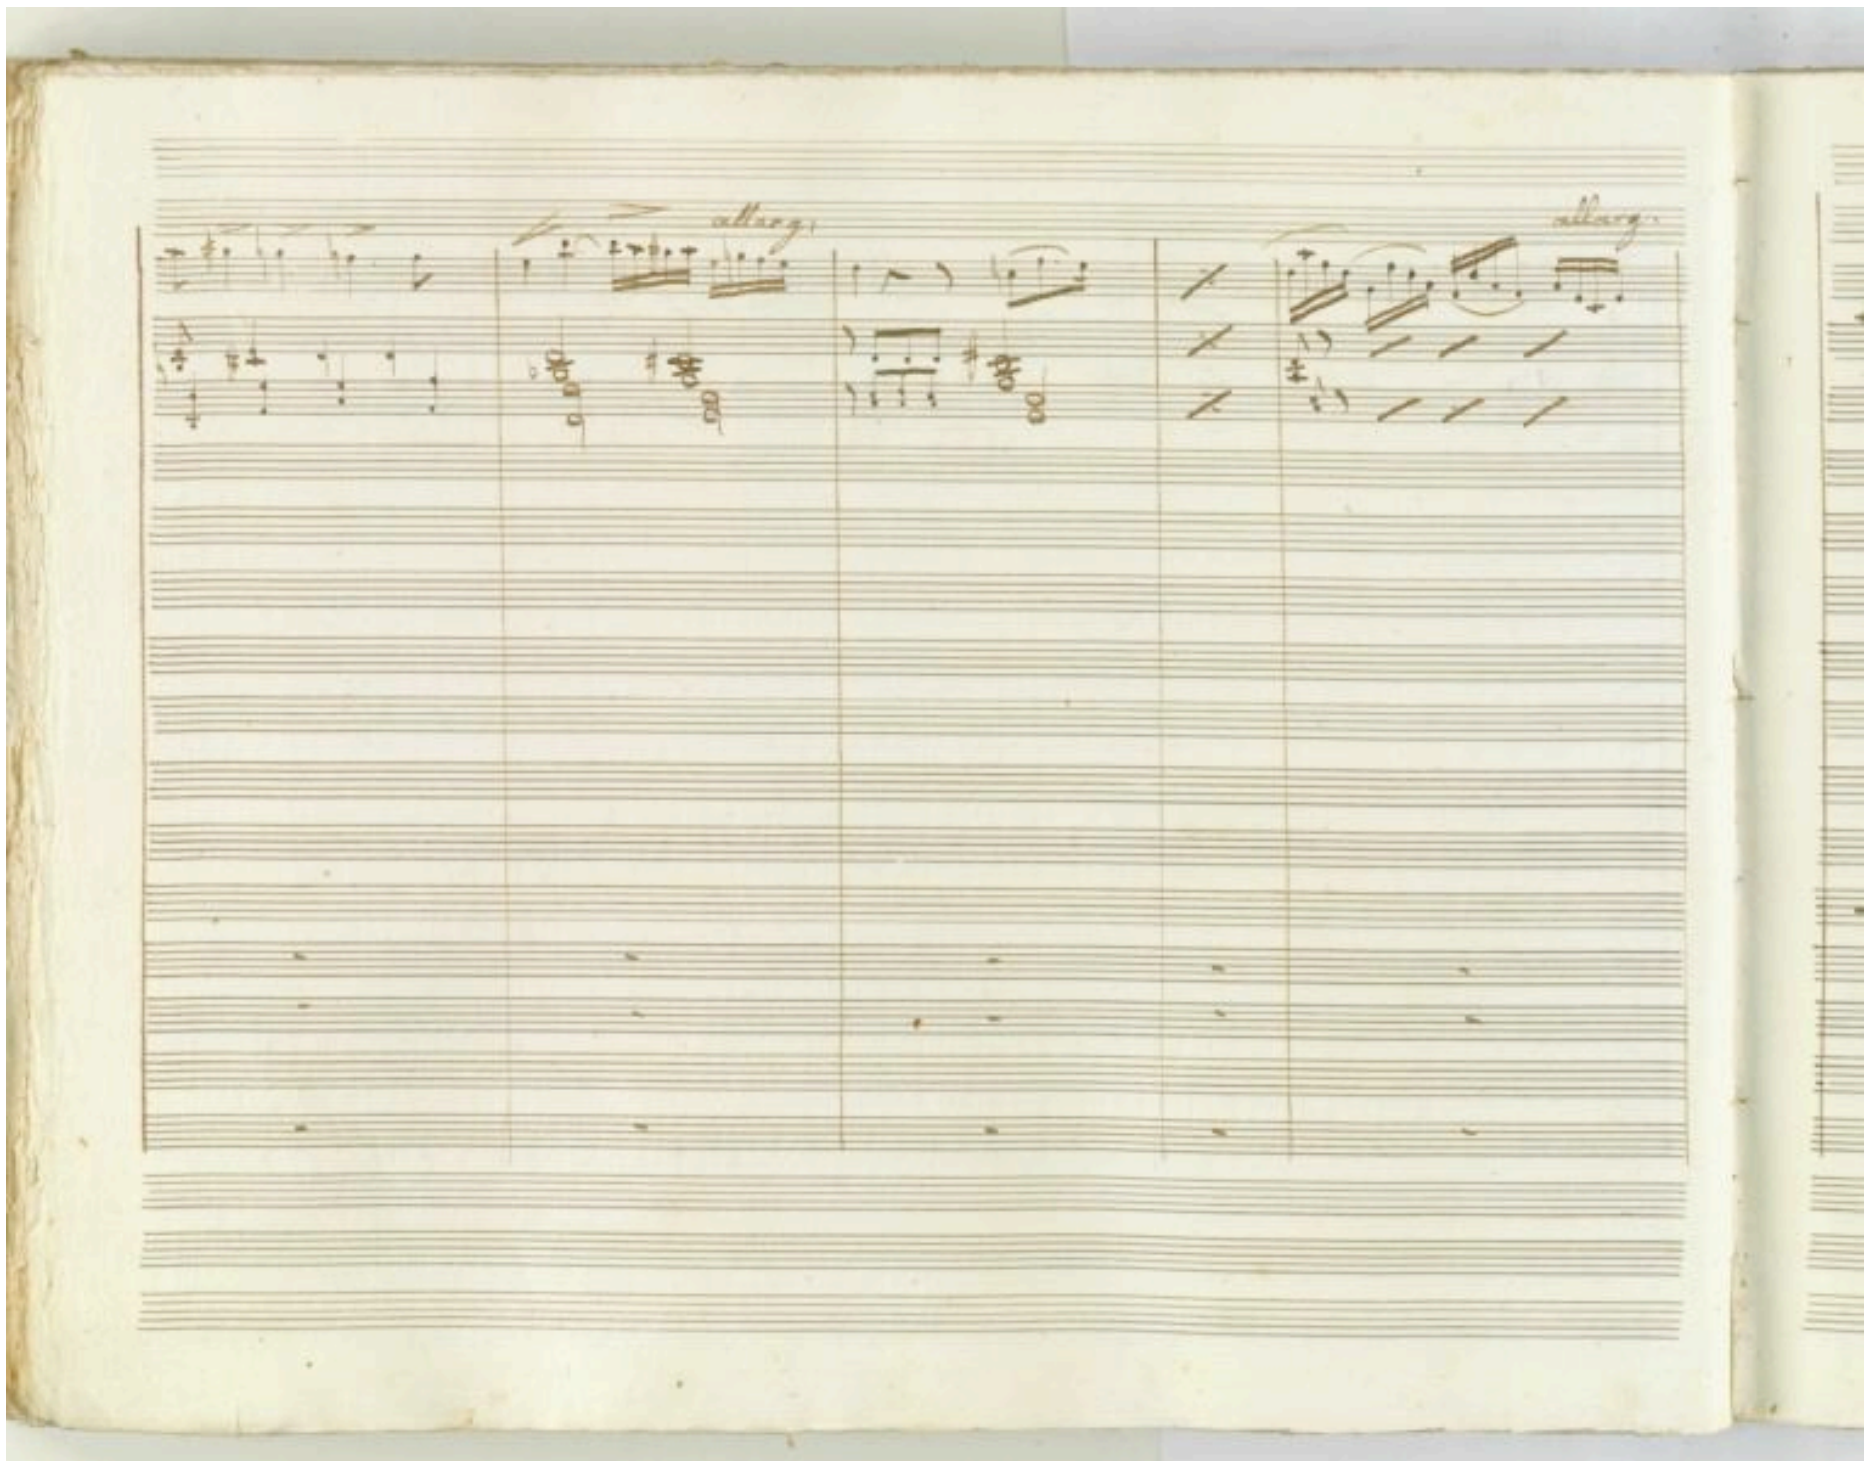 allarg.
allarg.